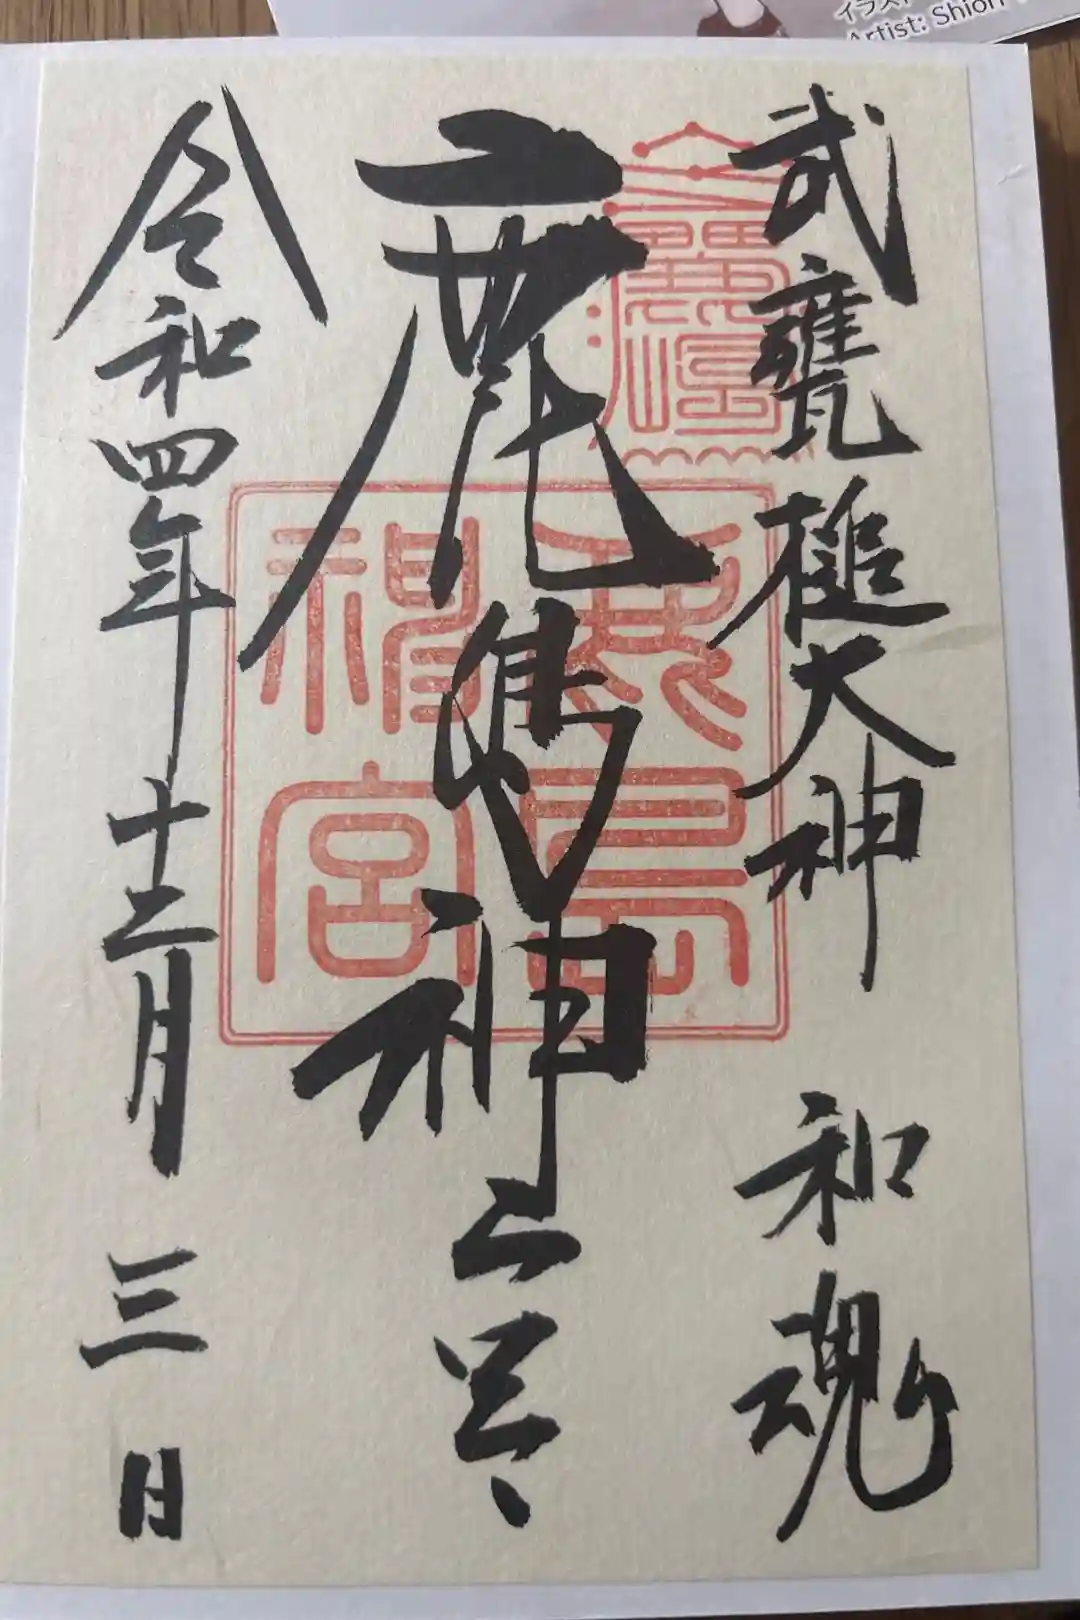 イラスト
Artist: Shion
武甕槌大神 和魂
鹿島神宮
令和四年十二月三日
神宮